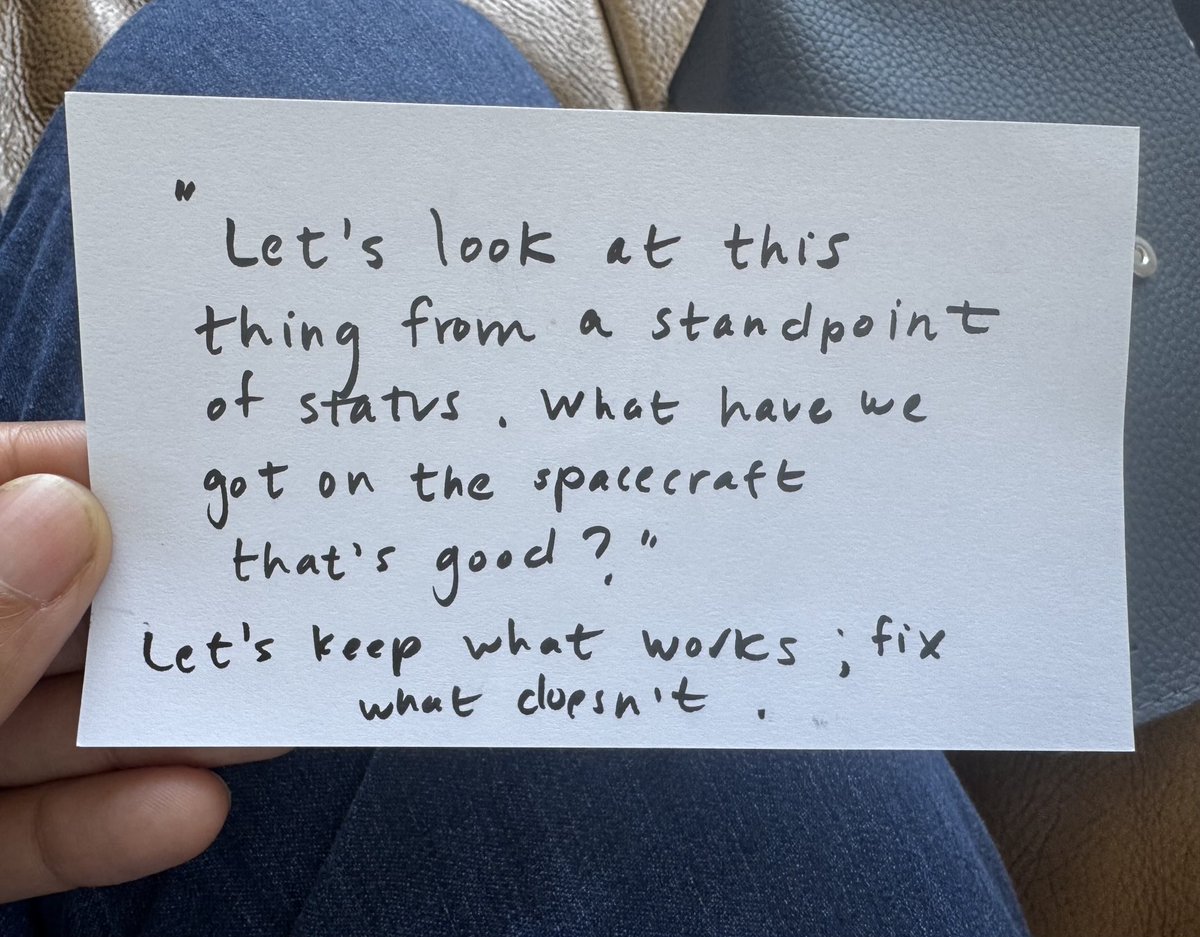 "Let's look at this
thing from a standpoint
of status. What have we
got on the spacecraft
that's good?"
Let's keep what works; fix
what doesn't.